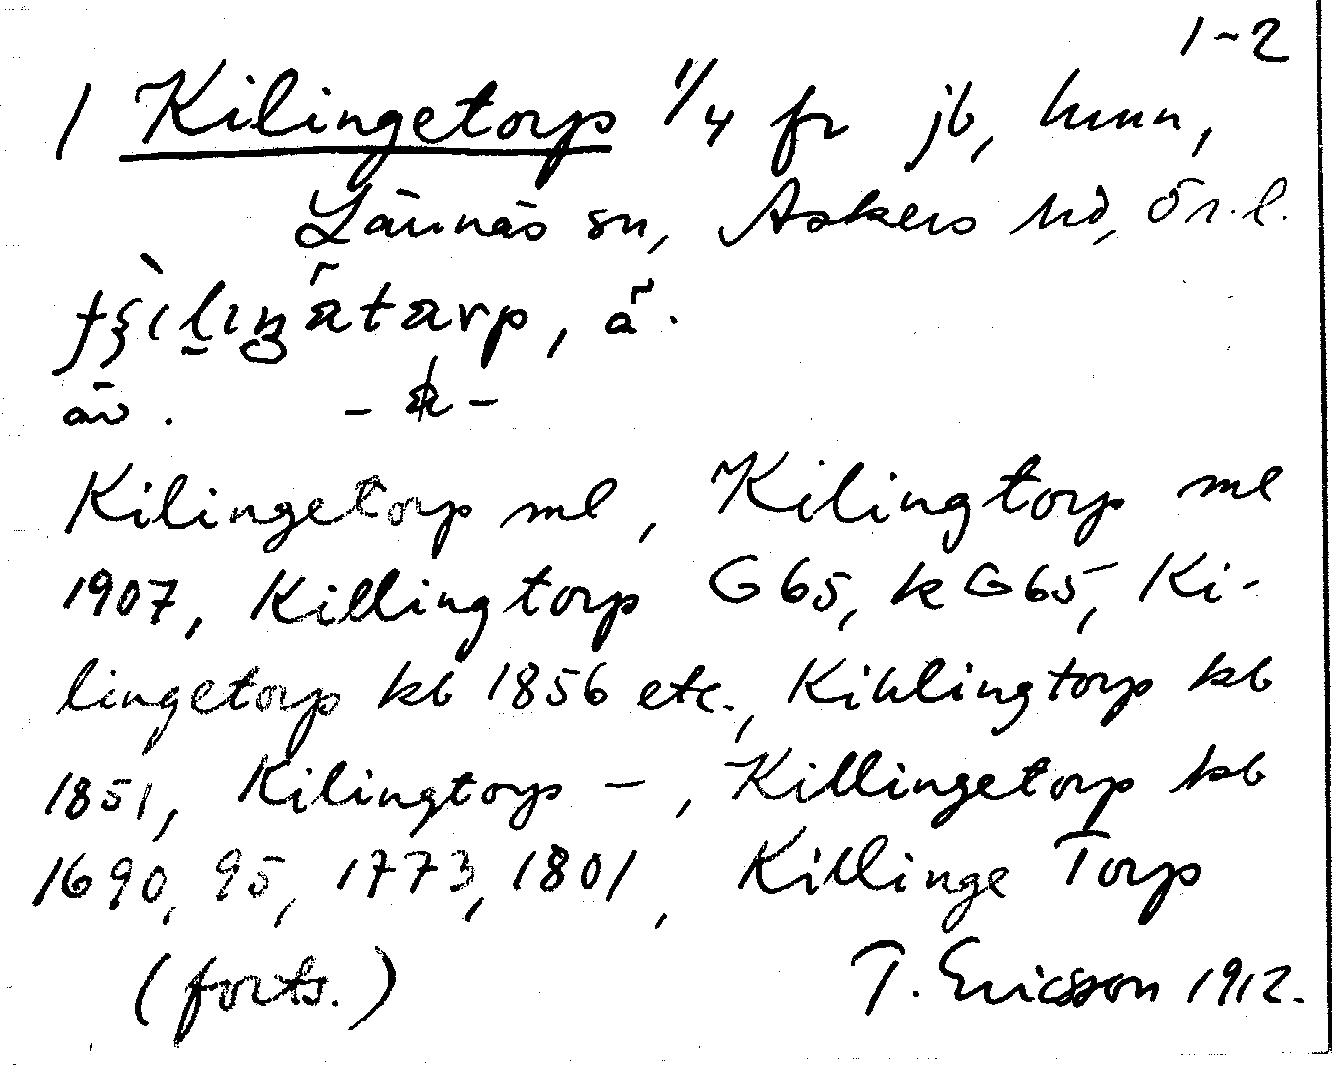 1-2
1 Kilingetorp 1/4 fr jb, hmn,
Lännäs sn, Askers hd, Ör.l.
av. -
Kilingetorp ml, Kilingtorp ml
1907, Killingtorp G65, k G65, Ki-
lingetorp kb 1856 etc., Kihlingtorp kb
1851, Kilingtorp -, Killingetorp kb
1690, 95, 1773, 1801, Killinge Torp
(forts.) T. Ericsson 1912.